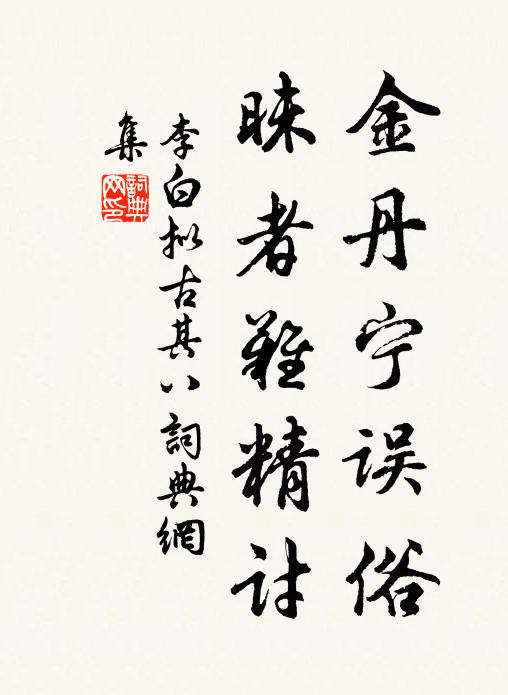 金丹宁误俗
昧者难精討
李白拟古其八 詞典網
集
詞典网印